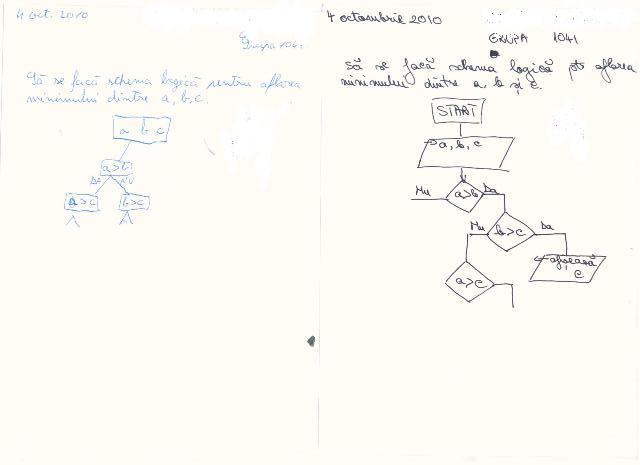 4 oct. 2010
Grupa 104.
Să se facă schema logică pentru aflarea
minimului dintre a, b, c.
a b c
a>b
DA NU
a>c b>c
4 octombrie 2010
GRUPA 1041
să se facă schema logică pt aflarea
minimului dintre a, b și c.
START
→a, b, c
Nu a>b Da
Nu b>c Da
←afișează
c
a>c